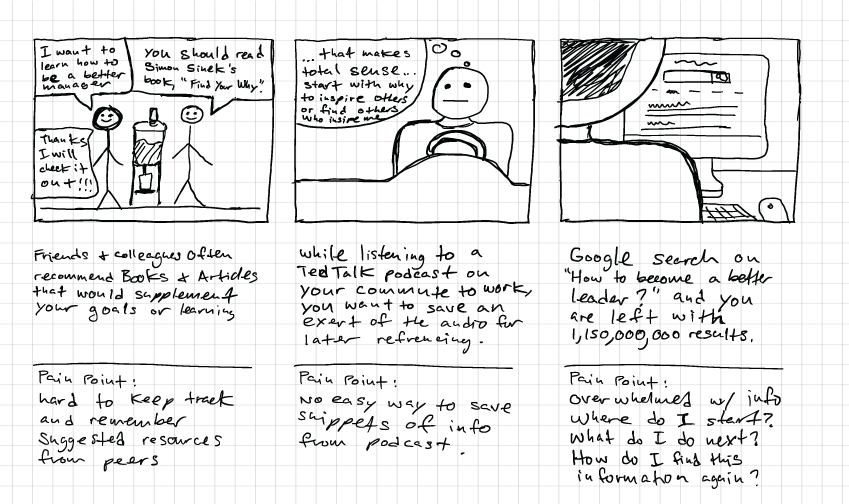 I want to
learn how to
be a better
manager
you should read
Simon Sinek's
book, "Find Your Why."
Thanks
I will
check it
out!!!
Friends & colleagues often
recommend Books & Articles
that would supplement
your goals or learning
Pain Point:
hard to keep track
and remember
suggested resources
from peers
...that makes
total sense...
start with why
to inspire others
or find others
who insire me
while listening to a
TedTalk podcast on
your commute to work,
you want to save an
exert of the audio for
later refrencing.
Pain Point:
No easy way to save
snippets of info
from podcast.
Google search on
"How to become a better
leader?" and you
are left with
1,150,000,000 results.
Pain Point:
overwhelmed w/ info
Where do I start?
What do I do next?
How do I find this
information again?